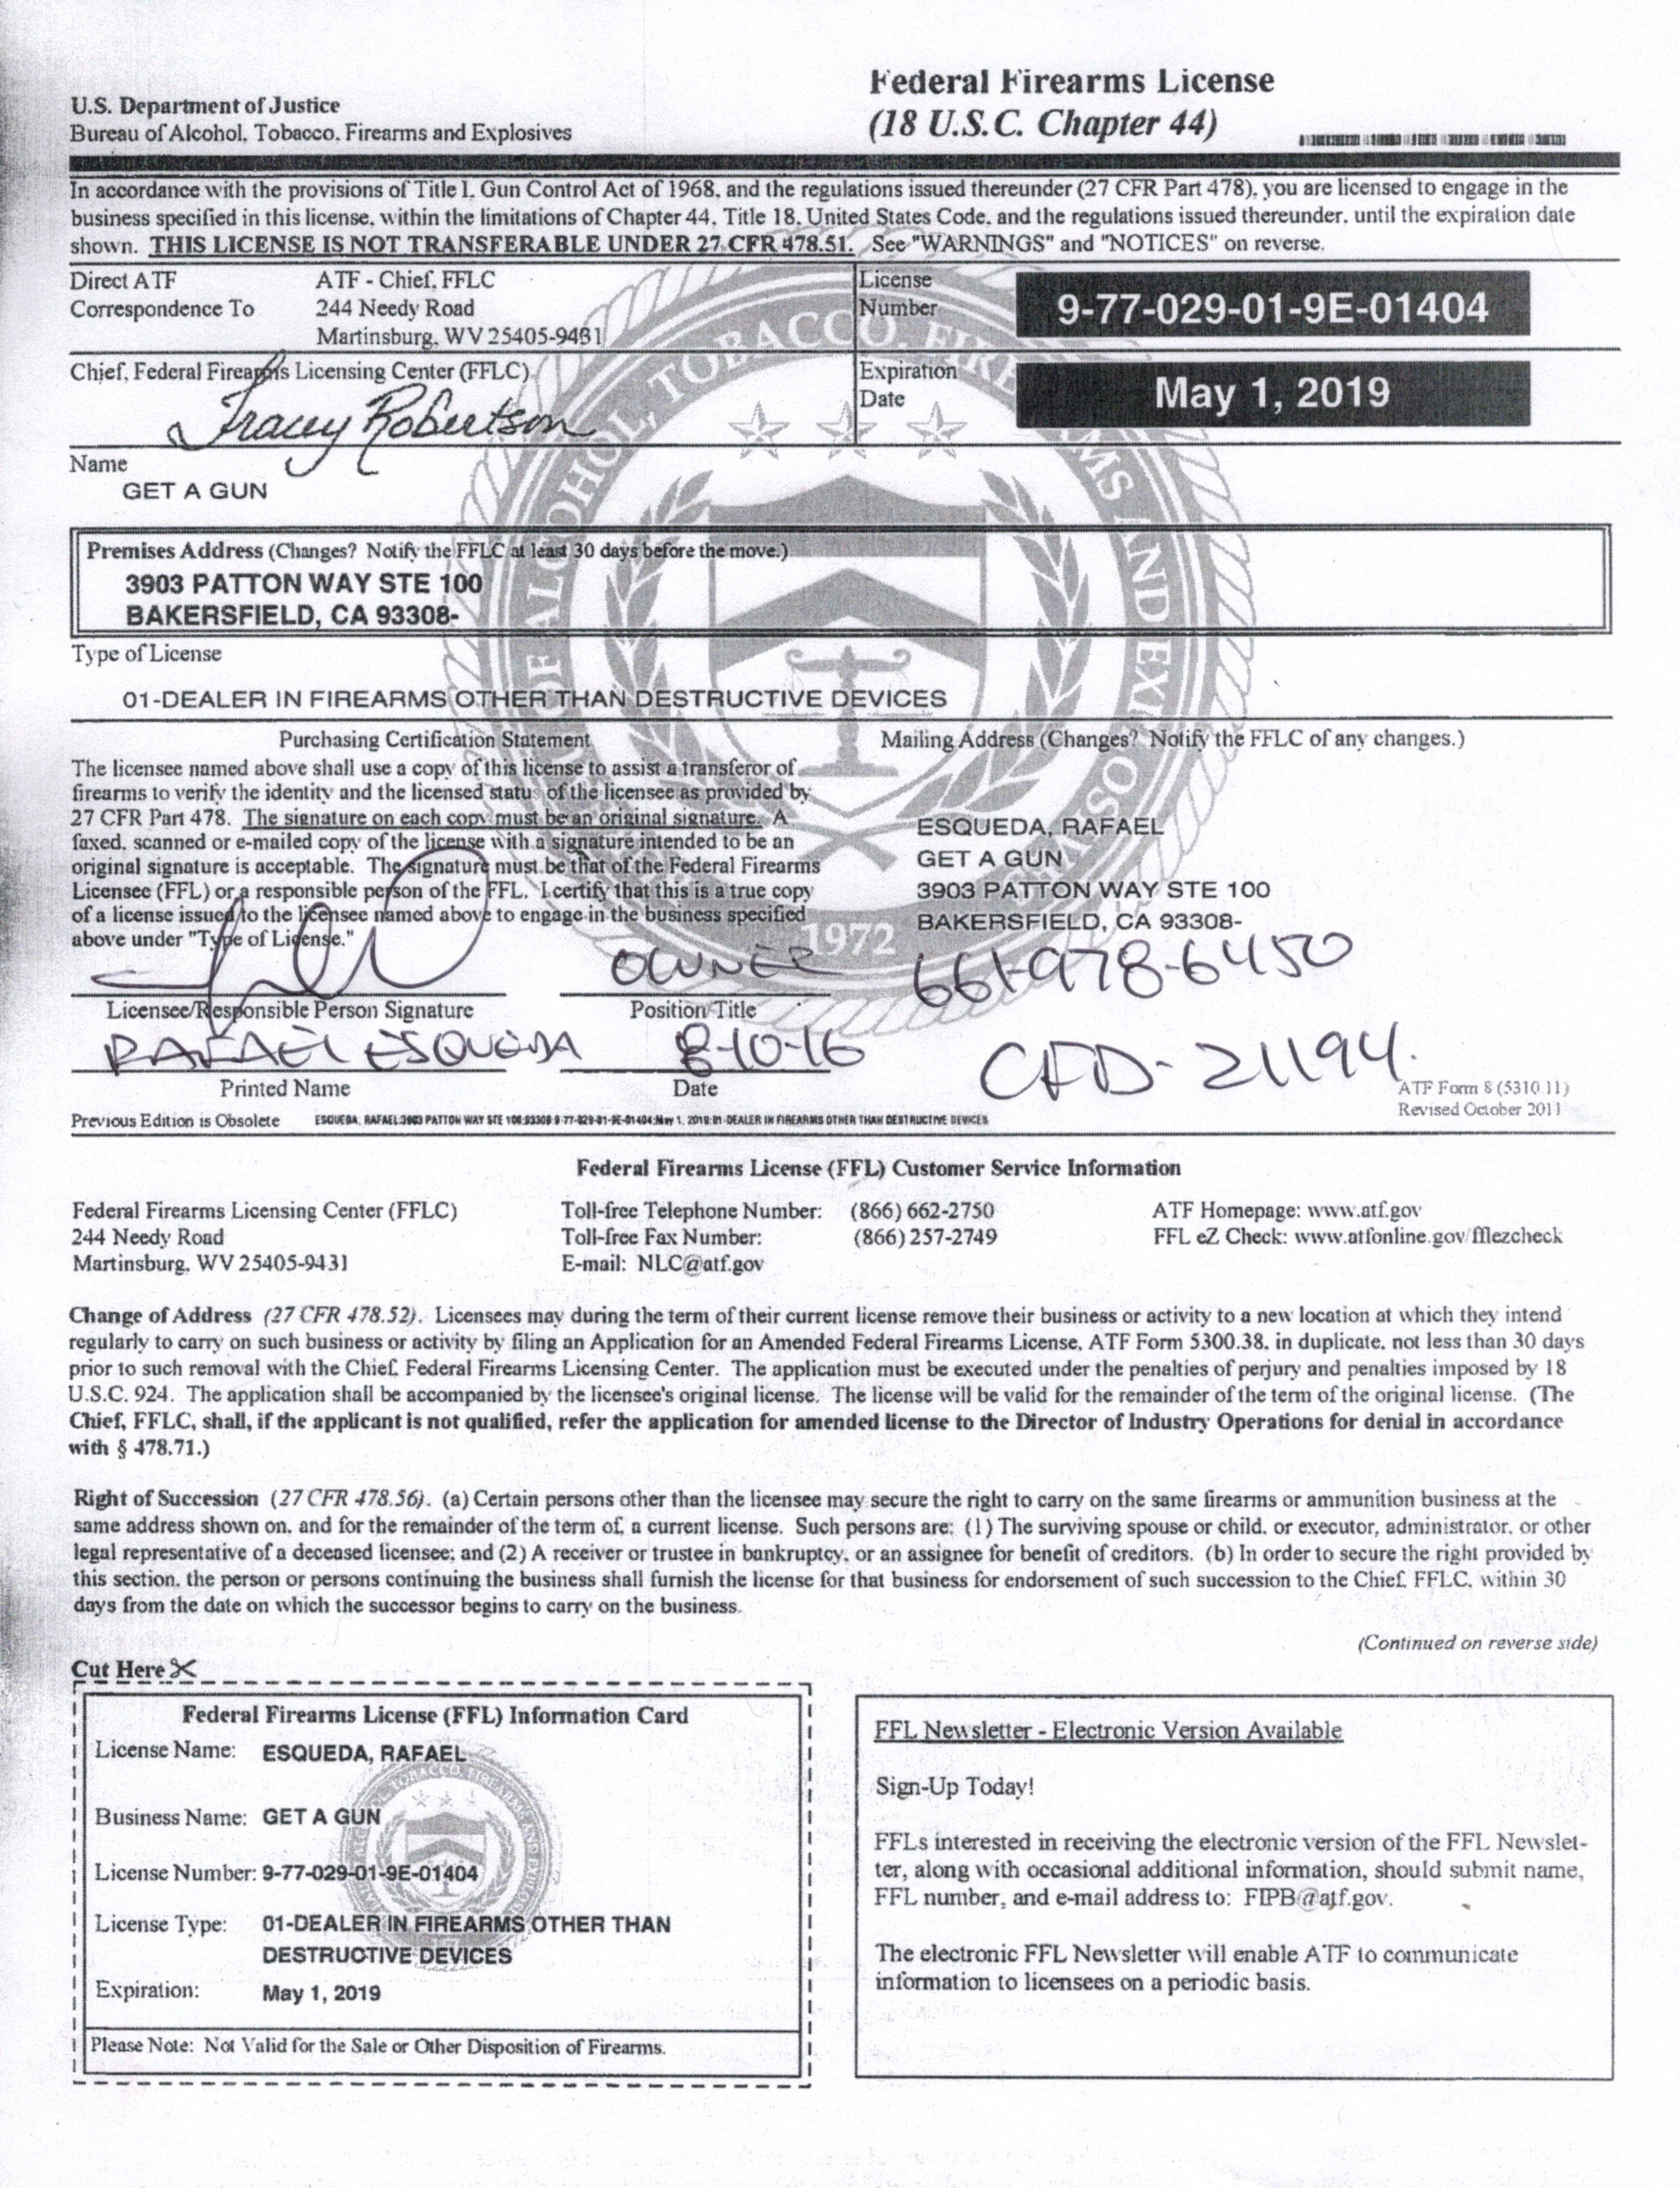 U.S. Department of Justice
Bureau of Alcohol, Tobacco, Firearms and Explosives
Federal Firearms License
(18 U.S.C. Chapter 44)
In accordance with the provisions of Title I, Gun Control Act of 1968, and the regulations issued thereunder (27 CFR Part 478), you are licensed to engage in the
business specified in this license, within the limitations of Chapter 44, Title 18, United States Code, and the regulations issued thereunder, until the expiration date
shown. THIS LICENSE IS NOT TRANSFERABLE UNDER 27 CFR 478.51. See "WARNINGS" and "NOTICES" on reverse.
Direct ATF
Correspondence To
ATF - Chief, FFLC
244 Needy Road
Martinsburg, WV 25405-9431
License
Number
9-77-029-01-9E-01404
Chief, Federal Firearms Licensing Center (FFLC)
Tracey Robertson
Expiration
Date
May 1, 2019
Name
GET A GUN
Premises Address (Changes? Notify the FFLC at least 30 days before the move.)
3903 PATTON WAY STE 100
BAKERSFIELD, CA 93308-
Type of License
01-DEALER IN FIREARMS OTHER THAN DESTRUCTIVE DEVICES
Purchasing Certification Statement
The licensee named above shall use a copy of this license to assist a transferor of
firearms to verify the identity and the licensed status of the licensee as provided by
27 CFR Part 478. The signature on each copy must be an original signature. A
faxed, scanned or e-mailed copy of the license with a signature intended to be an
original signature is acceptable. The signature must be that of the Federal Firearms
Licensee (FFL) or a responsible person of the FFL. I certify that this is a true copy
of a license issued to the licensee named above to engage in the business specified
above under "Type of License."
Mailing Address (Changes? Notify the FFLC of any changes.)
ESQUEDA, RAFAEL
GET A GUN
3903 PATTON WAY STE 100
BAKERSFIELD, CA 93308-
1972
OWNER
661-978-6450
Licensee/Responsible Person Signature
Position/Title
RAFAEL ESQUEDA
8-10-16
CFD-21194.
Printed Name
Date
ATF Form 8 (5310.11)
Revised October 2011
Previous Edition is Obsolete
ESQUEDA, RAFAEL:3903 PATTON WAY STE 100:93308:9-77-029-01-9E-01404:May 1, 2019:01-DEALER IN FIREARMS OTHER THAN DESTRUCTIVE DEVICES
Federal Firearms License (FFL) Customer Service Information
Federal Firearms Licensing Center (FFLC)
244 Needy Road
Martinsburg, WV 25405-9431
Toll-free Telephone Number: (866) 662-2750
Toll-free Fax Number: (866) 257-2749
E-mail: NLC@atf.gov
ATF Homepage: www.atf.gov
FFL eZ Check: www.atfonline.gov/fflezcheck
Change of Address (27 CFR 478.52). Licensees may during the term of their current license remove their business or activity to a new location at which they intend
regularly to carry on such business or activity by filing an Application for an Amended Federal Firearms License, ATF Form 5300.38, in duplicate, not less than 30 days
prior to such removal with the Chief, Federal Firearms Licensing Center. The application must be executed under the penalties of perjury and penalties imposed by 18
U.S.C. 924. The application shall be accompanied by the licensee's original license. The license will be valid for the remainder of the term of the original license. (The
Chief, FFLC, shall, if the applicant is not qualified, refer the application for amended license to the Director of Industry Operations for denial in accordance
with § 478.71.)
Right of Succession (27 CFR 478.56). (a) Certain persons other than the licensee may secure the right to carry on the same firearms or ammunition business at the
same address shown on, and for the remainder of the term of, a current license. Such persons are: (1) The surviving spouse or child, or executor, administrator, or other
legal representative of a deceased licensee; and (2) A receiver or trustee in bankruptcy, or an assignee for benefit of creditors. (b) In order to secure the right provided by
this section, the person or persons continuing the business shall furnish the license for that business for endorsement of such succession to the Chief, FFLC, within 30
days from the date on which the successor begins to carry on the business.
(Continued on reverse side)
Cut Here
Federal Firearms License (FFL) Information Card
License Name: ESQUEDA, RAFAEL
Business Name: GET A GUN
License Number: 9-77-029-01-9E-01404
License Type: 01-DEALER IN FIREARMS OTHER THAN
DESTRUCTIVE DEVICES
Expiration: May 1, 2019
Please Note: Not Valid for the Sale or Other Disposition of Firearms.
FFL Newsletter - Electronic Version Available
Sign-Up Today!
FFLs interested in receiving the electronic version of the FFL Newslet-
ter, along with occasional additional information, should submit name,
FFL number, and e-mail address to: FIPB@atf.gov.
The electronic FFL Newsletter will enable ATF to communicate
information to licensees on a periodic basis.